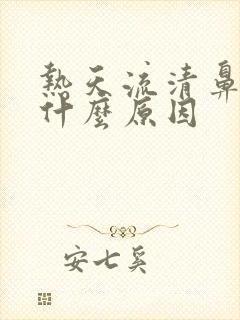 熱天流清鼻
什麼原因
安七奚